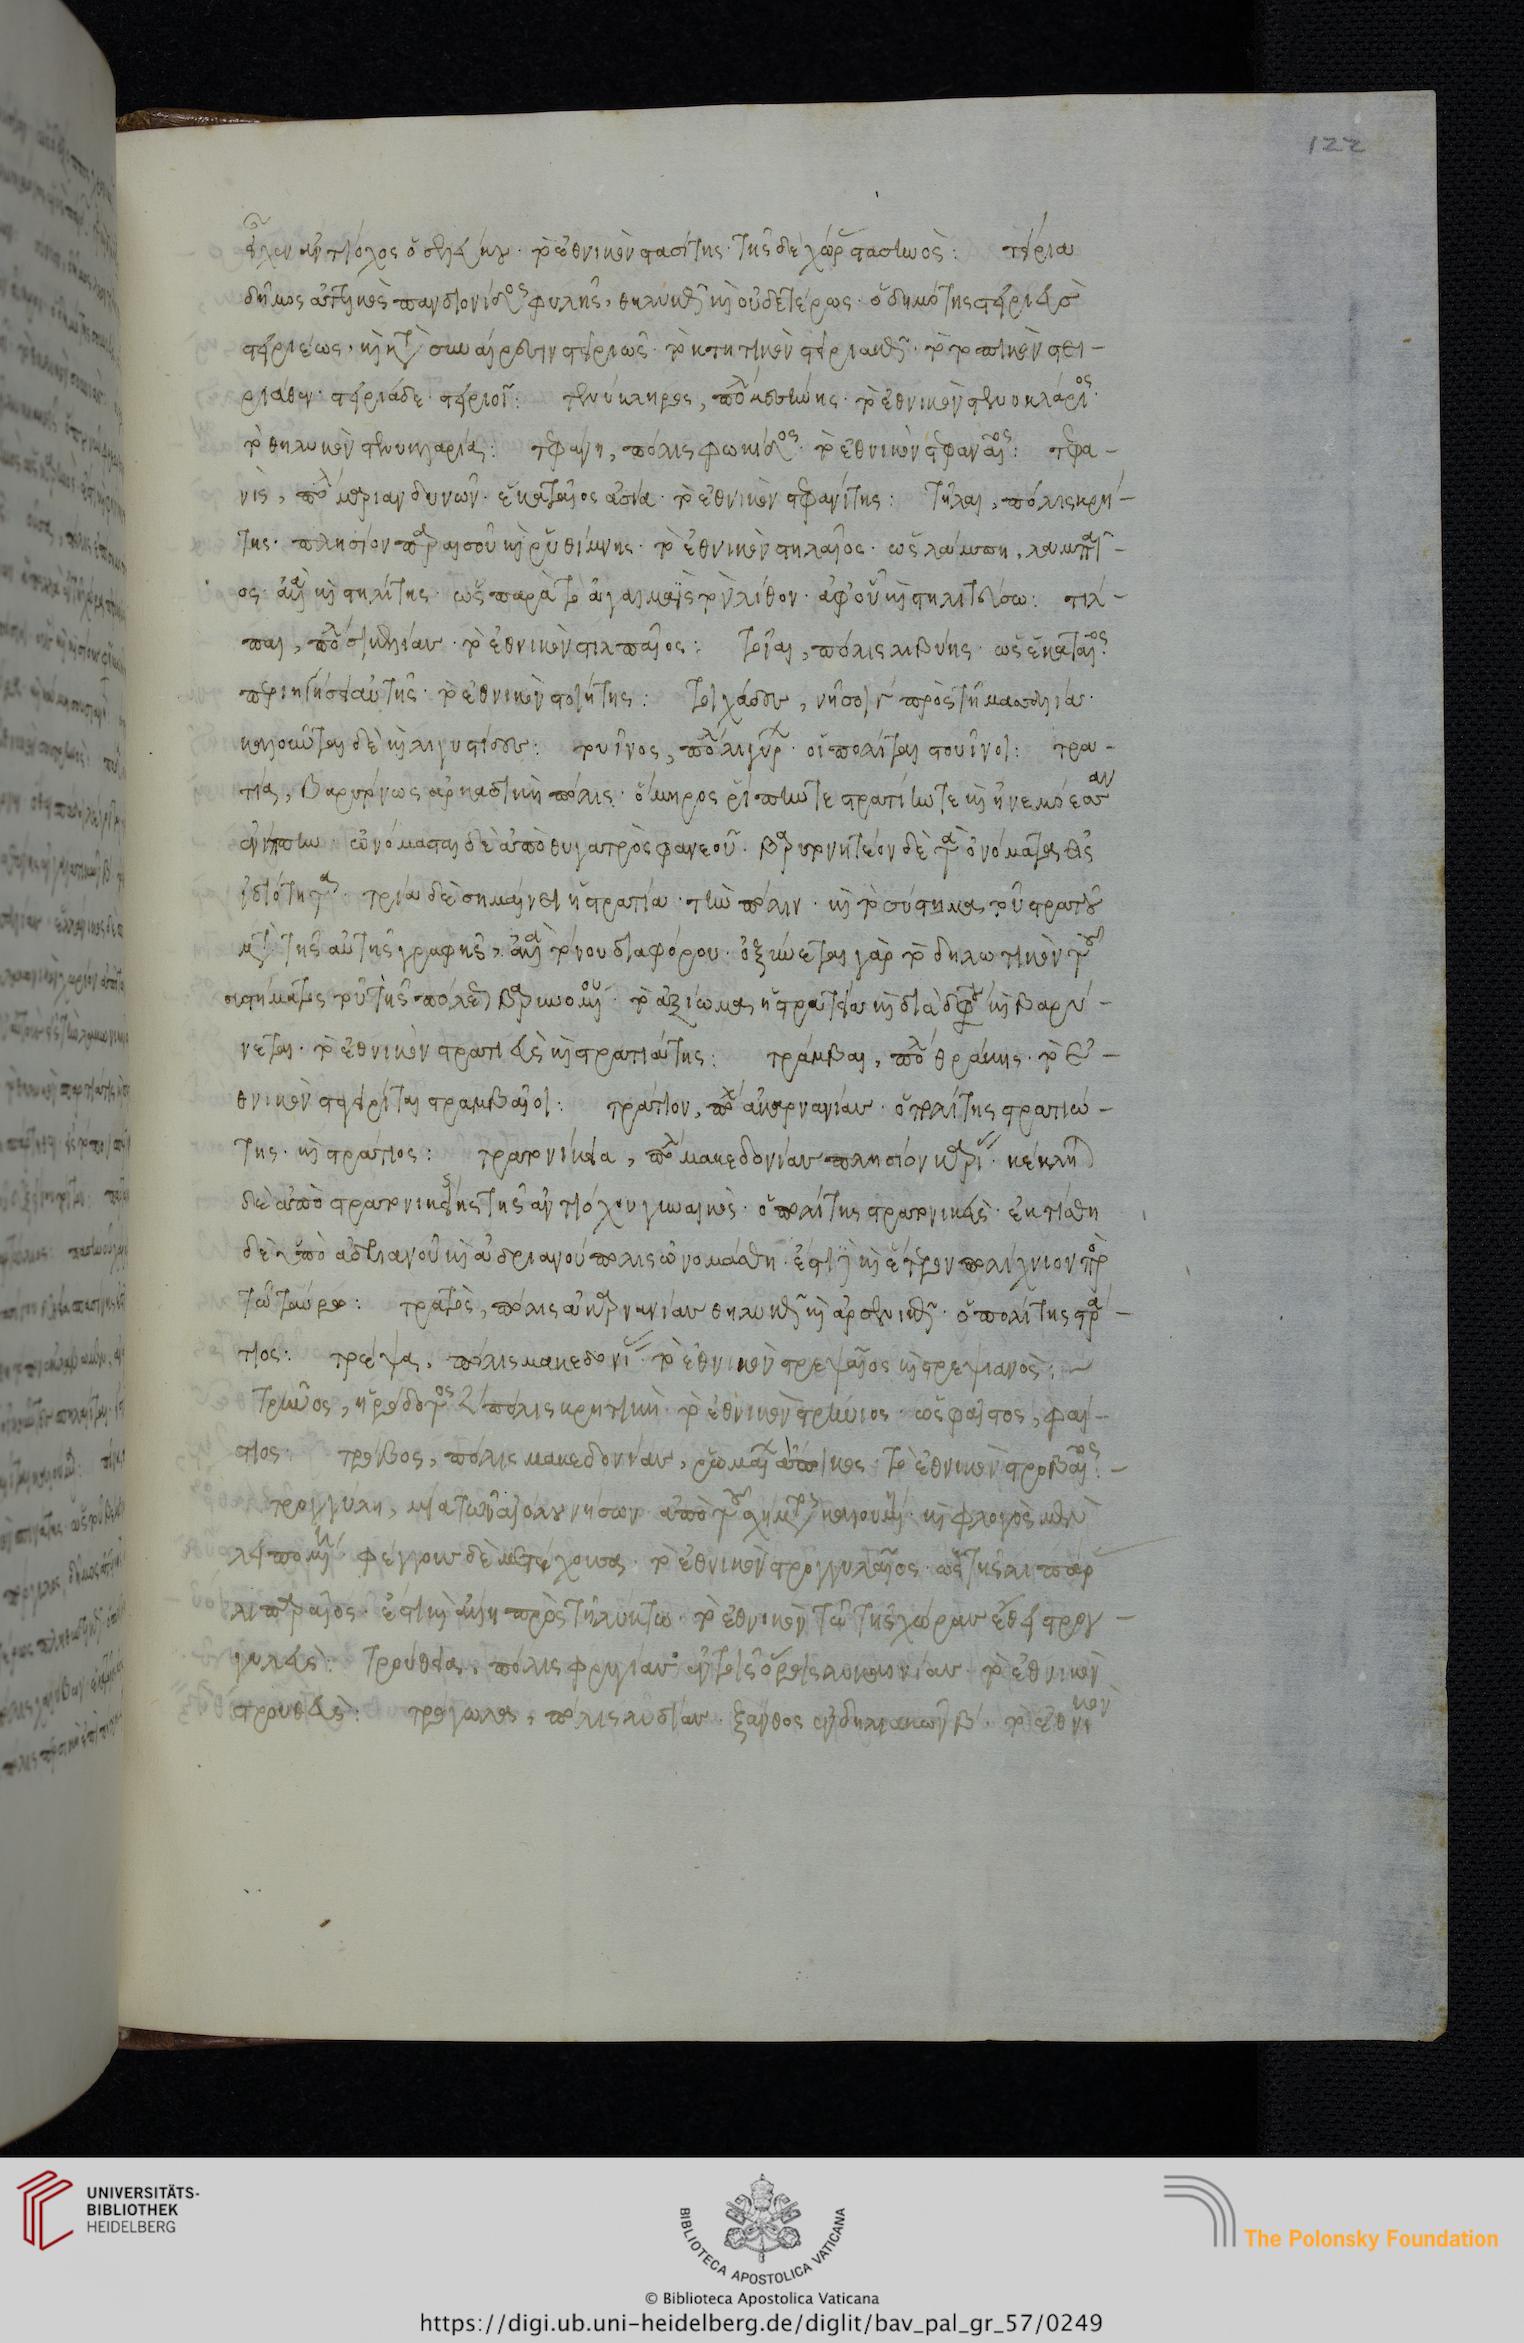 εἶχεν ἀντίοχος ὁ σελεύκου. τὸ ἐθνικὸν στασίτης. τῆς δὲ χώρας στασιηνός: τειρία
δῆμος ἀττικὸς πανδιονίδος φυλῆς, θηλυκῶς καὶ οὐδετέρως. ὁ δημότης στειριεὺς
στειριέως. καὶ κατὰ συναίρεσιν στειριῶς. τὸ κτητικὸν στειριακῶς. τὸ τοπικὸν στει-
ριᾶθεν. στειριάδε στειριοῖ: τενύκληρος, πόλις τὸ ἐθνικὸν στενυκλάριος.
τὸ θηλυκὸν στενυκλαρία: τεφάνη, πόλις φωκίδος. τὸ ἐθνικὸν στεφαναῖος: τεφα-
νὶς, πόλις μαριανδυνῶν. ἑκαταῖος ἀσία. τὸ ἐθνικὸν στεφανίτης: τῆλαι, πόλις κρή-
της. πλησίον παραισοῦ καὶ ῥυθίμνης. τὸ ἐθνικὸν στηλαῖος. ὡς λάμπη, λαμπαῖ-
ος ἀλλὰ καὶ στηλίτης. ὡς παρὰ τὸ τὸν λίθον. ἀφ' οὗ καὶ στηλιτεύσω: τιλ-
παι, πόλις σικελίας. τὸ ἐθνικὸν στιλπαῖος: τοῖαι, πόλις λιβύης. ὡς ἑκαταῖος
περιηγήσει αὐτῆς. τὸ ἐθνικὸν στοιήτης: τοιχάδες, νῆσοι γ πρὸς τῆ μασσαλία.
καλοῦνται δὲ καὶ λιγυστίδες: τουῖνος, πόλις λιγύρων. οἱ πολῖται στουῖνοι: τρα-
τία, βαρυτόνως ἀρκαδικὴ πόλις. ὅμηρος ῥίπην τε στρατίην τε καὶ ἠνεμόεσσαν
ἐνίσπην ὠνόμασται δὲ ἀπὸ θυγατρὸς φανεοῦ. βαρυτονητέον δὲ τὰ ὀνόματα εἰς
ἰδιότητα. τρία δὲ σημαίνει ἡ στρατία. τὴν πόλιν. καὶ τὸ σύστημα τοῦ στρατοῦ
μετὰ τῆς αὐτῆς γραφῆς, ἀλλὰ τόνου διαφόρου. ὀξύνεται γὰρ τὸ δηλωτικὸν τοῦ
συστήματος τοῦ τῆς πόλεως βαρυνομένου. τὸ ἀξίωμα ἡ στρατεία καὶ διὰ διφθόγγου καὶ βαρύ-
νεται. τὸ ἐθνικὸν στρατιεὺς καὶ στρατιάτης: τράμβαι, πόλις θράκης. τὸ ἐ-
θνικὸν στραμβαῖοι: τράτιον, πόλις ἀκαρνανίας. ὁ πολίτης στρατιώ-
της. καὶ στράτιος: τρατονίκεια, πόλις μακεδονίας πλησίον καρίας. κέκληται
δὲ ἀπὸ στρατονίκης τῆς ἀντιόχου γυναικός. ὁ πολίτης στρατονικεύς. ἐκτίσθη
δὲ ὑπὸ ἀδριανοῦ καὶ ἀδριανούπολις ὠνομάσθη. ἔστι καὶ ἕτερον πολίχνιον πρὸς
τῶ ταύρω: τράτος, πόλις ἀκαρνανίας θηλυκῶς καὶ ἀρσενικῶς. ὁ πολίτης στρά-
τιος: τρέψα, πόλις μακεδονίας. τὸ ἐθνικὸν στρεψαῖος καὶ στρεψιανός:
τρῦος, ἡρόδοτος ζ πόλις κρητικὴ τὸ ἐθνικὸν στρύιος. ὡς φαῖστος, φαί-
στιος: τρόβος, πόλις μακεδονίας, ῥωμαίων ἄποικος. τὸ ἐθνικὸν στροβαῖος:
τρογγύλη, μία τῶν αἰόλου νήσων ἀπὸ τοῦ σχήματος καλουμένη. καὶ φλογὸς μὲν
λειπομένη. φέγγους δὲ μετέχουσα. τὸ ἐθνικὸν στρογγυλαῖος. ὡς τῆς λιπάρας
λιπαραῖος. ἔστι καὶ ἄλλη πρὸς τῆ λύκτω. τὸ ἐθνικὸν τῶ τῆς χώρας ἔθει στρογ-
γυλεύς: τρούθεια, πόλις φρυγίας ἐν τοῖς ὄρεσι λυκαονίας. τὸ ἐθνικὸν
στρουθεύς: τρόγωλα, πόλις λυδίας. ξάνθος ἐν λυδιακῶν β. τὸ ἐθνικὸν
122
UNIVERSITÄTS-
BIBLIOTHEK
HEIDELBERG
BIBLIOTECA APOSTOLICA VATICANA
The Polonsky Foundation
© Biblioteca Apostolica Vaticana
https://digi.ub.uni-heidelberg.de/diglit/bav_pal_gr_57/0249